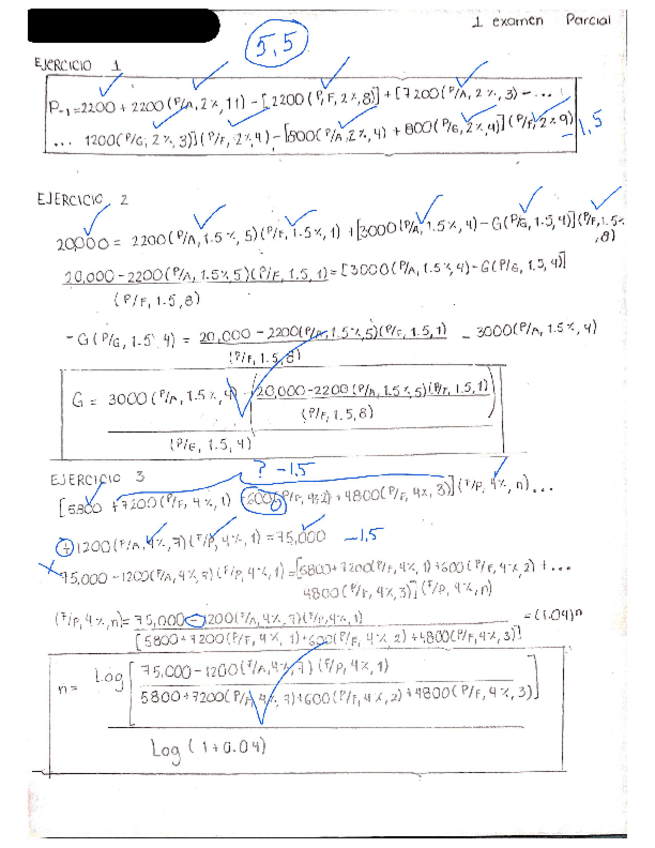 1 examen Parcial
5,5
EJERCICIO 1
P₋₁=2200 + 2200(P/A,2%,11) - [2200(P/F,2%,8)] + [7200(P/A,2%,3) - ...
... 1200(P/G,2%,3)](P/F,2%,4) - [800(P/A,2%,4) + 800(P/G,2%,4)](P/F,2%9)
-1,5
EJERCICIO 2
20,000 = 2200(P/A,1.5%,5)(P/F,1.5%,1) + [3000(P/A,1.5%,4) - G(P/G,1.5,4)](P/F,1.5%
,8)
20,000 - 2200(P/A,1.5%5)(P/F,1.5,1) = [3000(P/A,1.5%,4) - G(P/G,1.5,4)]
(P/F,1.5,8)
- G(P/G,1.5%4) = 20,000 - 2200(P/A,1.5%,5)(P/F,1.5,1) - 3000(P/A,1.5%,4)
(P/F,1.5,8)
G = 3000(P/A,1.5%,4) - (20,000-2200(P/A,1.5%5)(P/F,1.5,1))
(P/F,1.5,8)
(P/G,1.5,4)
? -1,5
EJERCICIO 3
[5800 + 7200(P/F,4%,1) 600(P/F,4%2) + 4800(P/F,4%,3)](F/P,4%,n)...
+ 1200(F/A,4%,7)(F/P,4%,1) = 75,000 -1,5
75,000 - 1200(F/A,4%,7)(F/P,4%,1) = [5800+7200(P/F,4%,1)+600(P/F,4%,2) + ...
4800(P/F,4%,3)](F/P,4%,n)
(F/P,4%,n) = 75,000 - 1200(F/A,4%,7)(F/P,4%,1) = (1.04)ⁿ
[5800+7200(P/F,4%,1)+600(P/F,4%2)+4800(P/F,4%,3)]
n= Log [75,000 - 1200(F/A,4%,7)(F/P,4%,1)
5800+7200(P/F,4%,7)+600(P/F,4%,2)+4800(P/F,4%,3)]
Log (1+0.04)